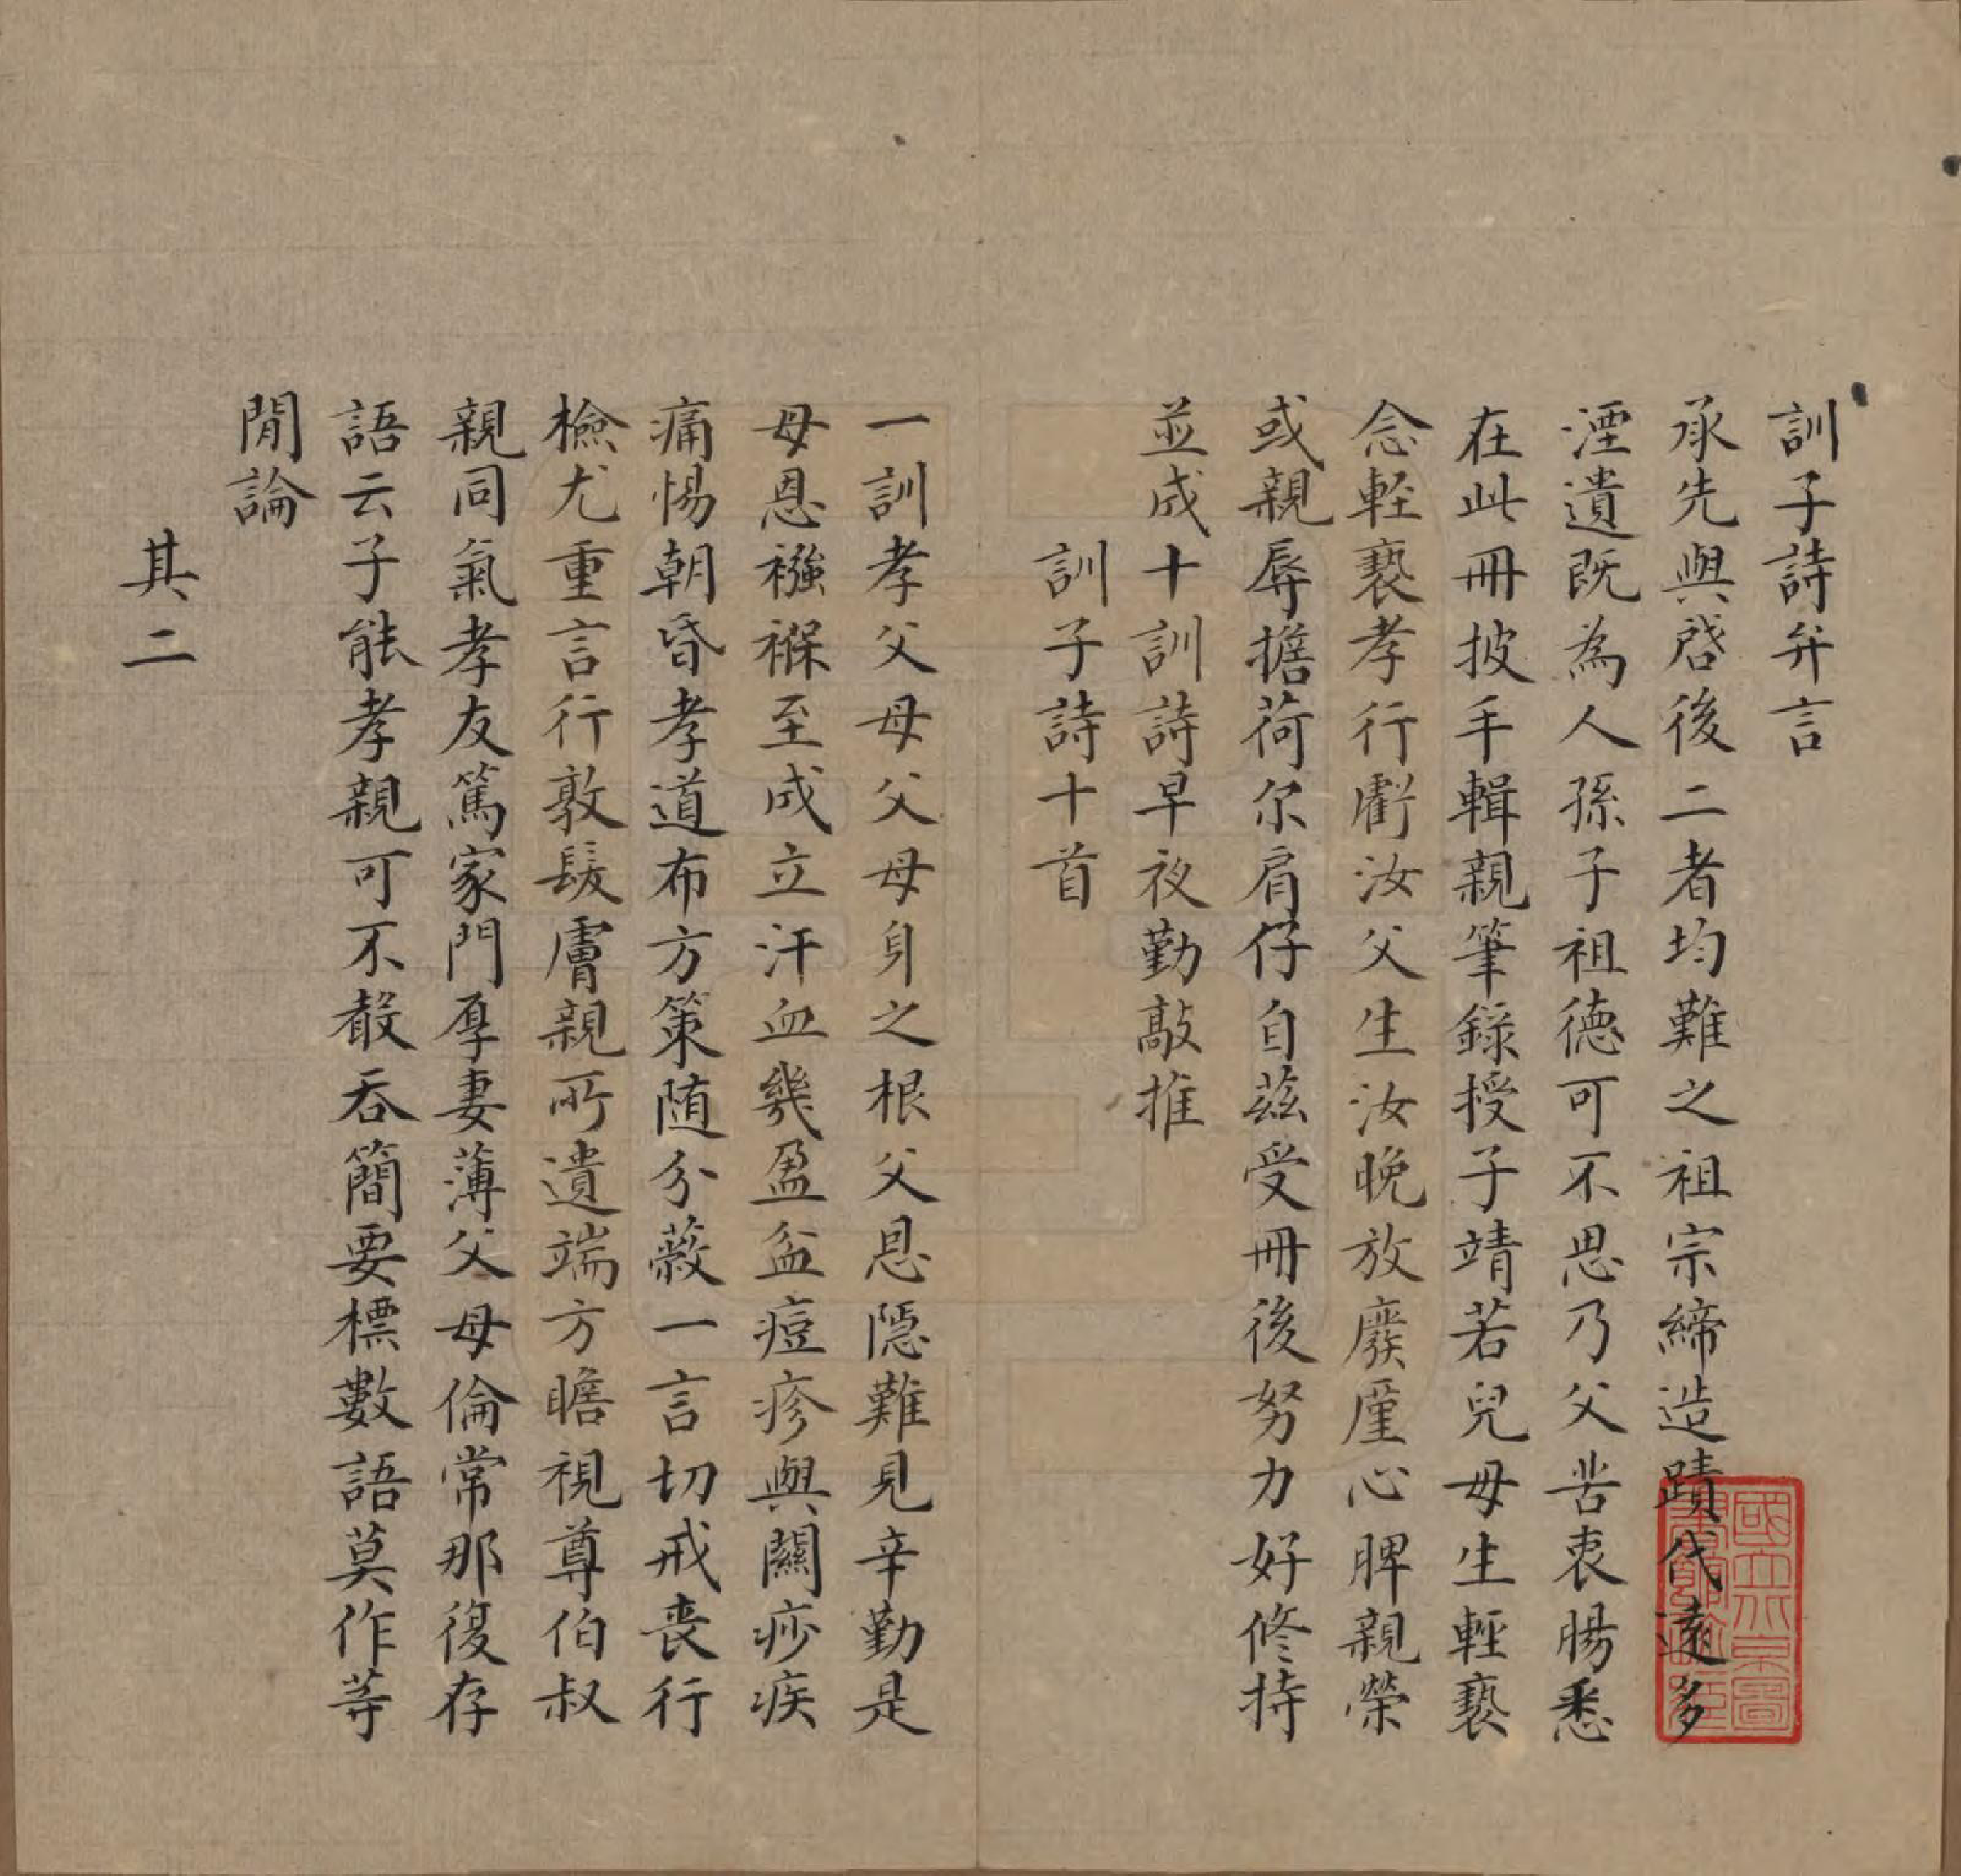 訓子詩弁言
承先與啓後二者均難之祖宗締造蹟代遠多
湮遺既為人孫子祖德可不思乃父苦衷腸悉
在此冊披手輯親筆錄授子靖若兒毋生輕褻
念輕褻孝行虧汝父生汝晚放廢廑心脾親榮
或親辱擔荷尔肩仔自茲受冊後努力好修持
並成十訓詩早夜勤敲推
訓子詩十首
一訓孝父母父母身之根父恩隱難見辛勤是
母恩襁褓至成立汗血幾盈盆痘疹與關痧疾
痛惕朝昏孝道布方策随分蘞一言切戒喪行
檢尤重言行敦髮膚親所遺端方瞻視尊伯叔
親同氣孝友篤家門厚妻薄父母倫常那復存
語云子能孝親可不殽吞簡要標數語莫作等
閒論
其二